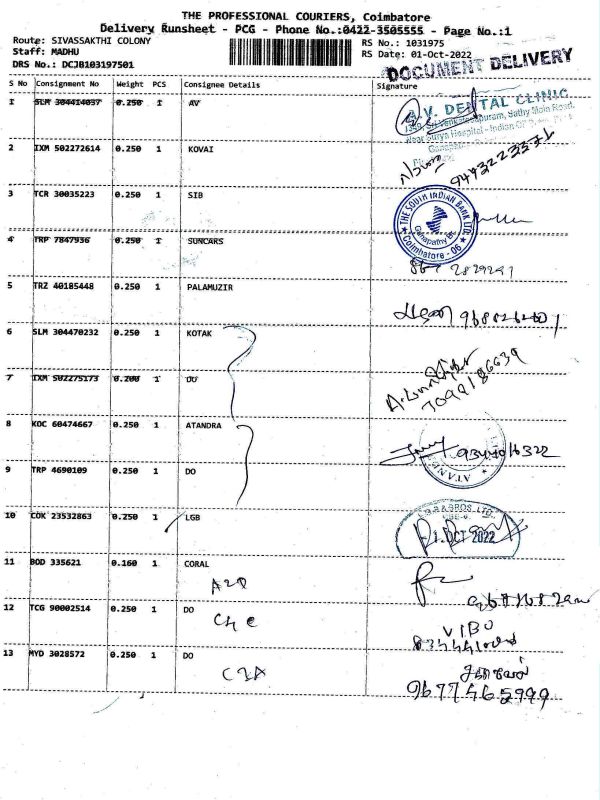 THE PROFESSIONAL COURIERS, Coimbatore
Delivery Runsheet - PCG - Phone No.:0422-3505555 - Page No.:1
Route: SIVASSAKTHI COLONY
Staff: MADHU
DRS No.: DCJB103197501
RS No.: 1031975
RS Date: 01-Oct-2022
DOCUMENT DELIVERY
S No Consignment No Weight PCS Consignee Details Signature
1 SLM 304414037 0.250 1 AV
V. DENTAL CLINIC
Sathy Main Road,
Hospital - Indian
2 IXM 502272614 0.250 1 KOVAI
3 TCR 30035223 0.250 1 SIB
THE SOUTH INDIAN BANK LTD.
Ganapathy Br.
Coimbatore - 06
4 TRP 7847936 0.250 1 SUNCARS
5 TRZ 40185448 0.250 1 PALAMUZIR
6 SLM 304470232 0.250 1 KOTAK
7 IXM 502275173 0.200 1 DO
7099186639
8 KOC 60474667 0.250 1 ATANDRA
9 TRP 4690109 0.250 1 DO
10 COK 23532863 0.250 1 LGB
1 OCT 2022
11 BOD 335621 0.160 1 CORAL
12 TCG 90002514 0.250 1 DO
VIBU
13 MYD 3028572 0.250 1 DO
9677465999